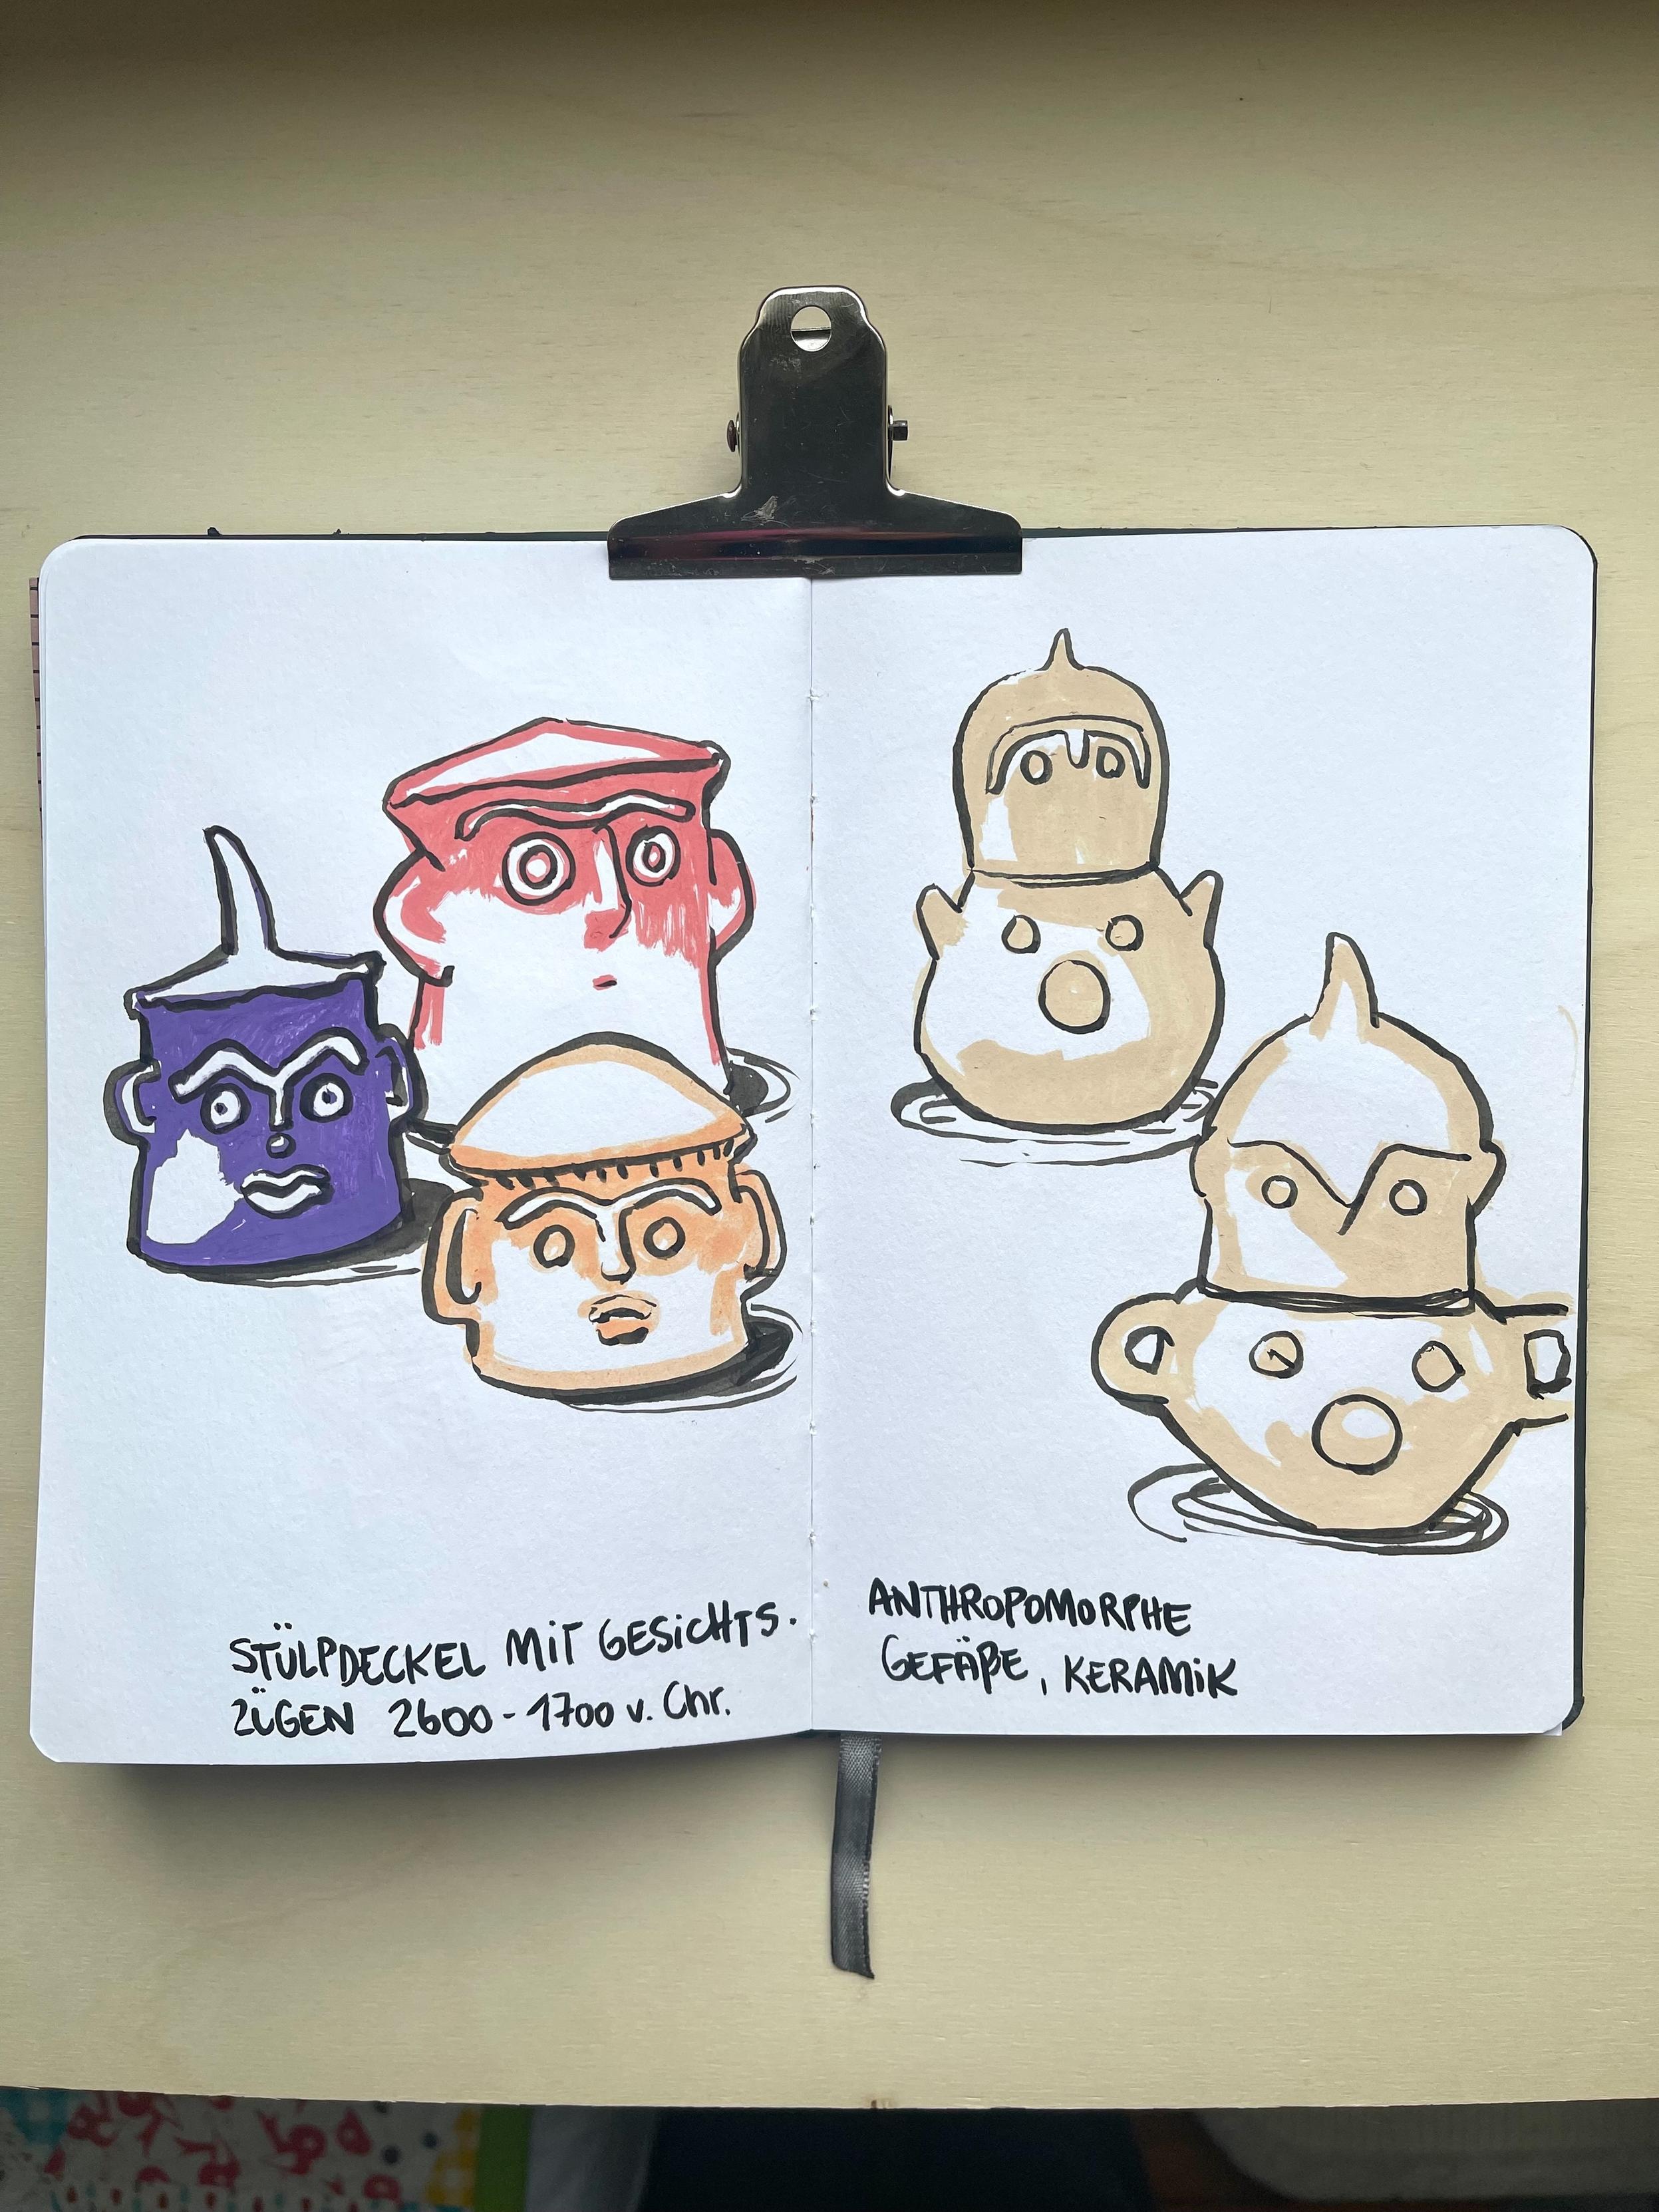 STÜLPDECKEL MiT GESiCHTS.
ZÜGEN 2600-1700 v. Chr.
ANTHROPOMORPHE
GEFÄßE, KERAMiK